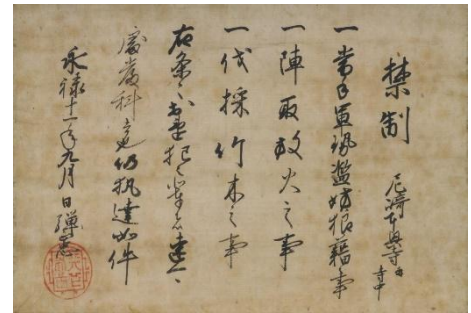 禁制 尼崎本興寺 寺中
一當手軍勢濫妨狼藉事
一陣取放火之事
一伐採竹木之事
右条々違犯之輩者速可
處嚴科 仍執達如件
永禄十一年九月日 弾正忠